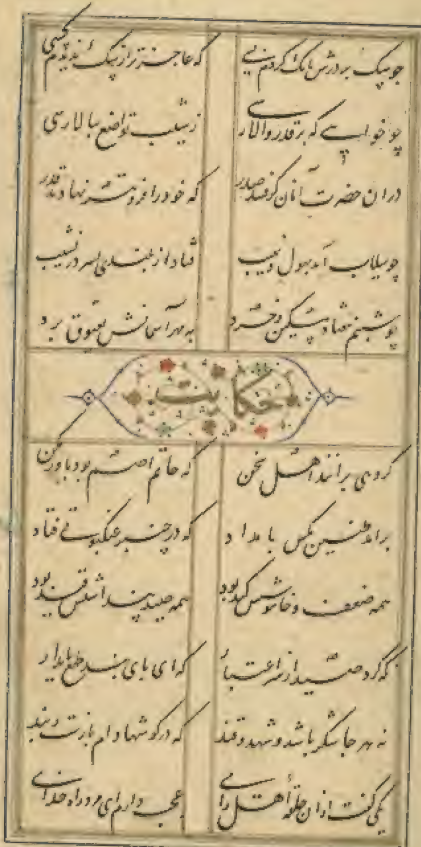 چو سگ بر درش بانگ کردم بسی که عاجزتر از سگ ندیدم کسی
چو خواهی که بر قدر والا رسی ز شیب تواضع ببالا رسی
در آن حضرت آنان گرفتند صدر که خود را فروتر نهادند قدر
چو سیلاب آمد بهول و نهیب فتاد از بلندی بسر در نشیب
چو شبنم بیفتاد مسکین و خرد به مهر آسمانش بعیوق برد
حکایت
گروهی برانند اهل سخن که حاتم اصم بود باور مکن
برآمد طنین مگس بامداد که در چنبر عنکبوتی فتاد
همه ضعف و خاموشیش کید بود مگس قند پنداشتش قید بود
که کرد شیخ از سر اعتبار که ای پای بند طمع پای دار
نه هر جا شکر باشد و شهد و قند که در گوشها دام بازست و بند
یکی گفت از آن حلقه اهل رای عجب دارم ای مرد راه خدای